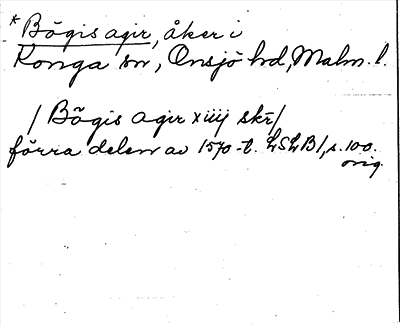 *Bögis agir, åker i
Konga sn, Onsjö hd, Malm. l.
/Bögis agir xiiij skr/
förra delen av 1570-t. LSLB1, s. 100.
orig.